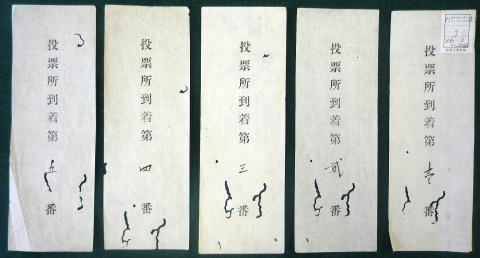 投票所到着第壱番
投票所到着第貳番
投票所到着第三番
投票所到着第四番
投票所到着第五番